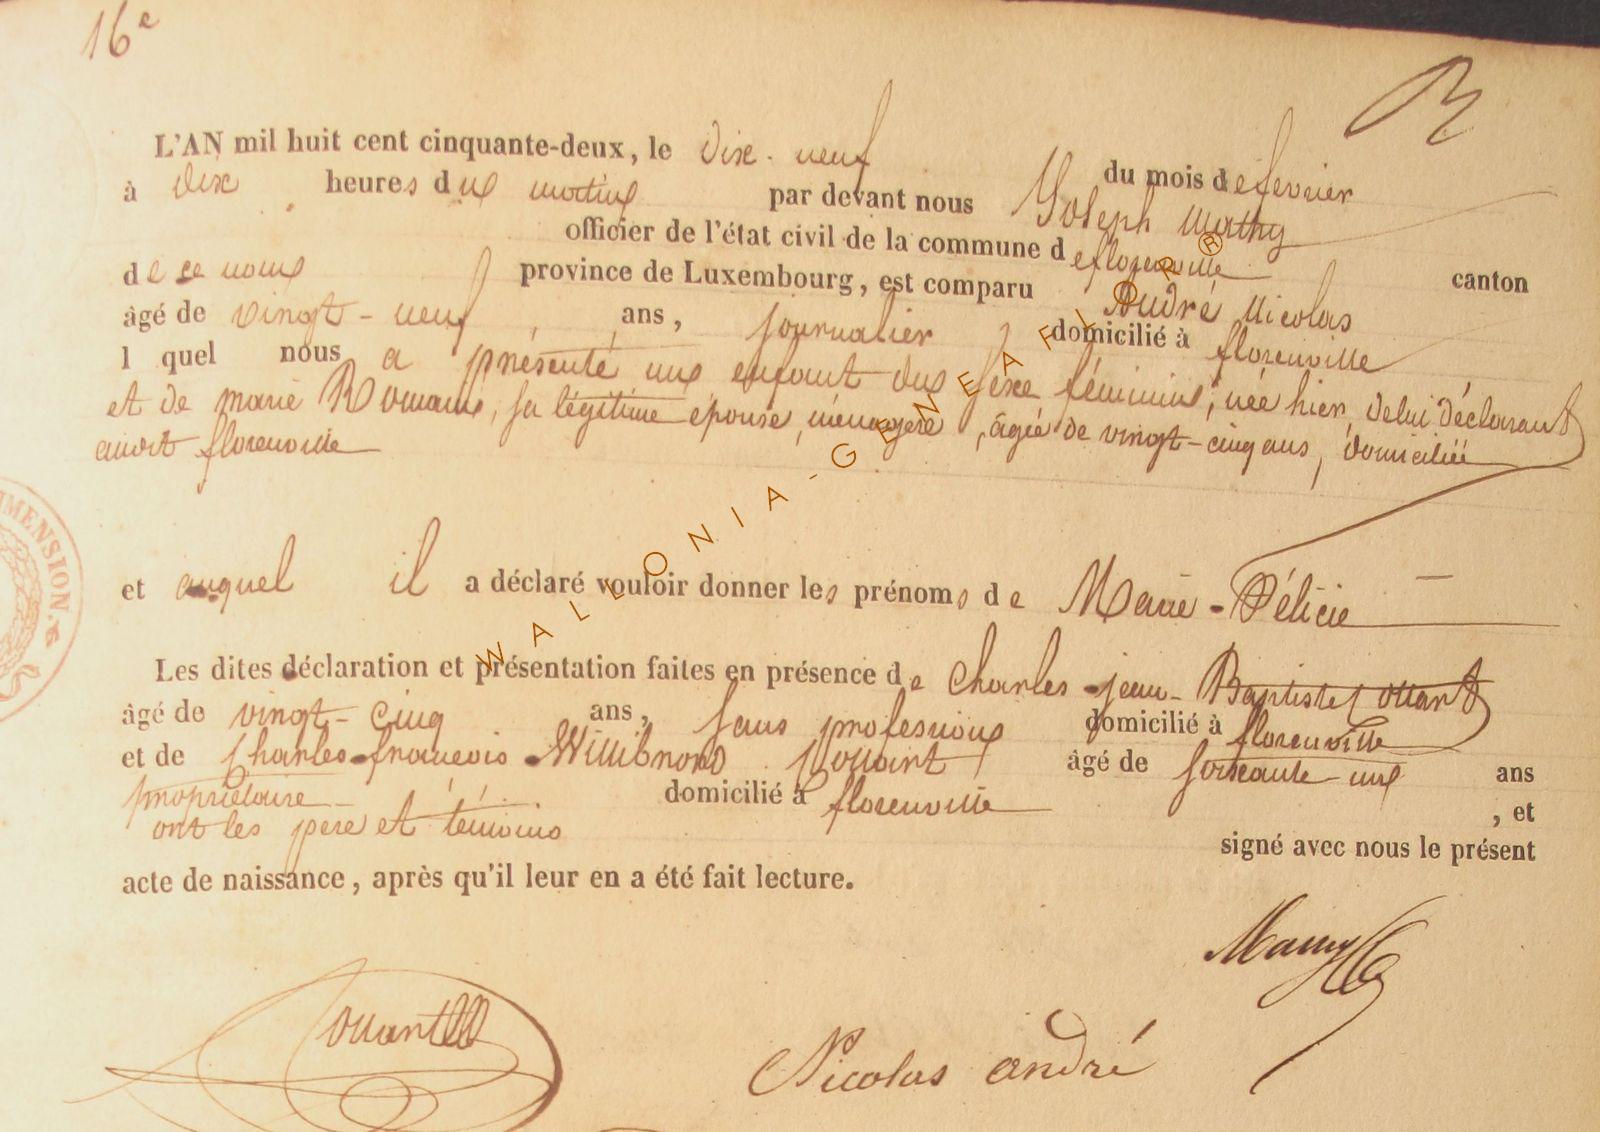 16e
L'AN mil huit cent cinquante-deux, le dix-neuf du mois de fevrier
à dix heures du matin par devant nous Joseph Mathy
officier de l'état civil de la commune de florenville canton
de ce nom province de Luxembourg, est comparu André Nicolas
âgé de vingt-neuf ans, journalier domicilié à florenville
l quel nous a présenté un enfant du sexe féminin, née hier, de lui déclarant
et de marie Romain, sa légitime épouse, ménagère, âgée de vingt-cinq ans, domiciliée
audit florenville
et auquel il a déclaré vouloir donner les prénoms de Marie-Félicie
Les dites déclaration et présentation faites en présence de Charles-jean-Baptiste
âgé de vingt-cinq ans, sans profession domicilié à florenville
et de Charles-françois âgé de soixante-un ans
propriétaire domicilié à florenville , et
ont les père et témoins signé avec nous le présent
acte de naissance, après qu'il leur en a été fait lecture.
Nicolas andré
IMENSION.
WALLONIA-GENEAFLOR®